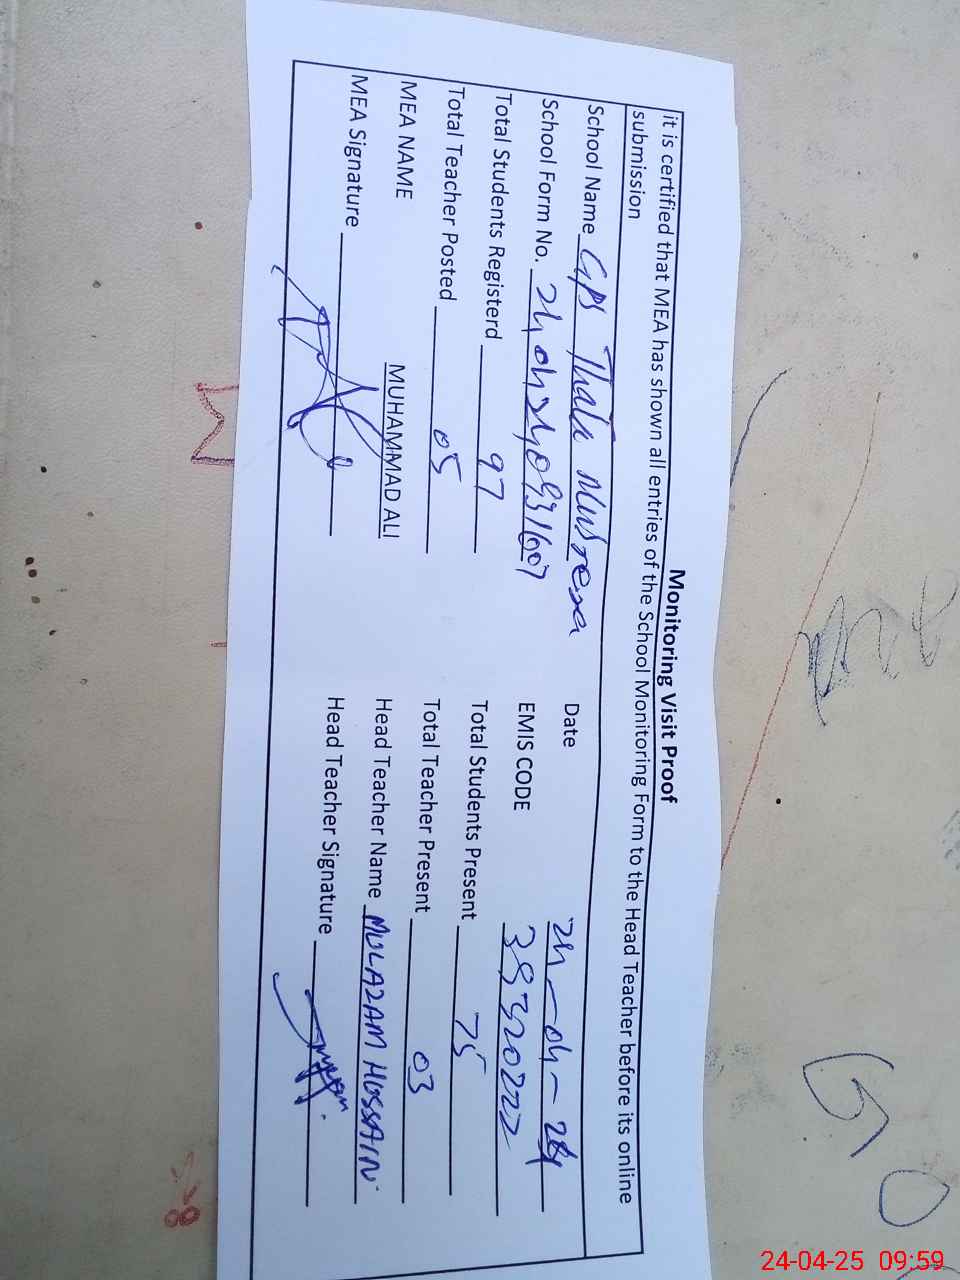 Monitoring Visit Proof
it is certified that MEA has shown all entries of the School Monitoring Form to the Head Teacher before its online
submission
School Name GPS Thala
Date 24-04-
School Form No.
EMIS CODE
Total Students Registerd 97
Total Students Present 75
Total Teacher Posted 05
Total Teacher Present 03
MEA NAME MUHAMMAD ALI
Head Teacher Name MULAZAM HUSSAIN
MEA Signature
Head Teacher Signature
24-04-25 09:59